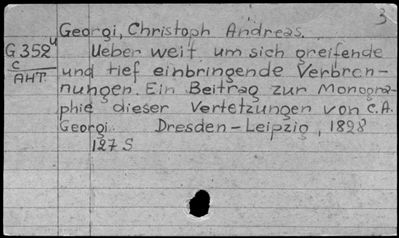 3
Georgi, Christoph Andreas.
G 352 u
c
AHT
Ueber weit um sich greifende
und tief einbringende Verbren-
nungen. Ein Beitrag zur Monogra-
phie dieser Vertetzungen von C.A.
Georgi. Dresden-Leipzig, 1828
127 S